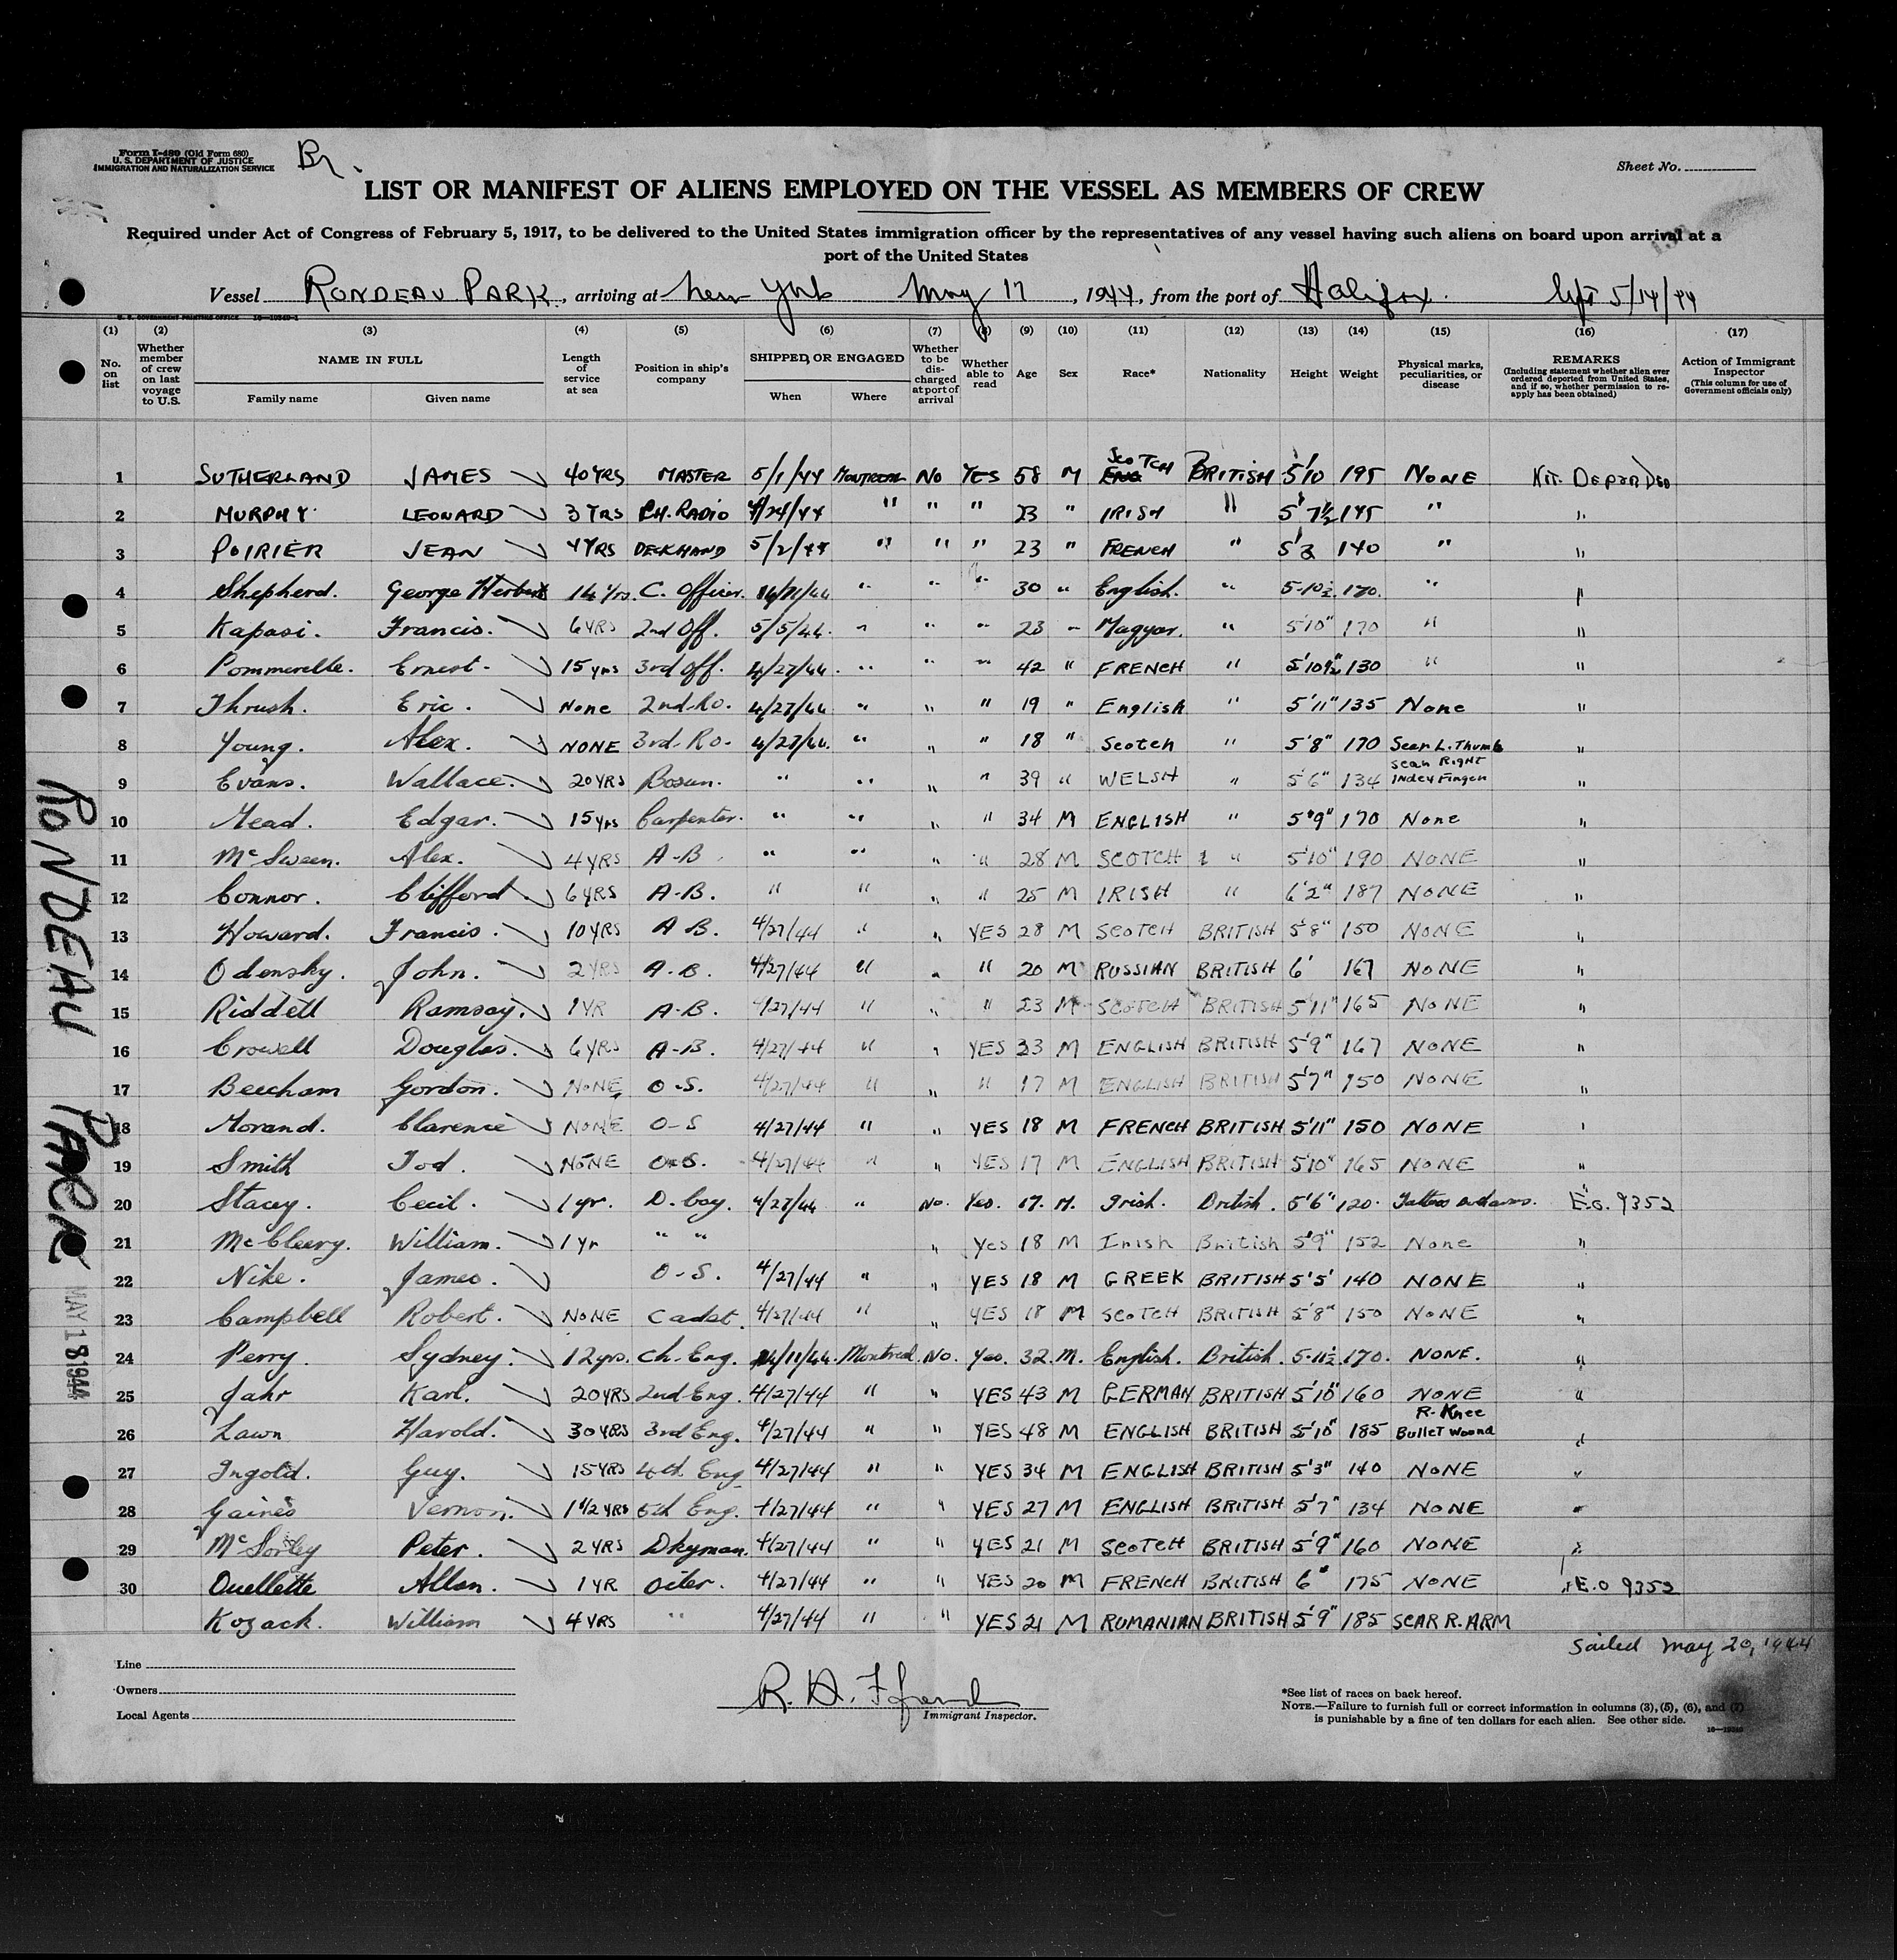 Form I-489 (Old Form 680)
U. S. DEPARTMENT OF JUSTICE
IMMIGRATION AND NATURALIZATION SERVICE
Br.
Sheet No.
LIST OR MANIFEST OF ALIENS EMPLOYED ON THE VESSEL AS MEMBERS OF CREW
Required under Act of Congress of February 5, 1917, to be delivered to the United States immigration officer by the representatives of any vessel having such aliens on board upon arrival at a
port of the United States
Vessel RONDEAU PARK, arriving at New York May 17, 1944, from the port of Halifax. left 5/14/44
(1) (2) (3) (4) (5) (6) (7) (8) (9) (10) (11) (12) (13) (14) (15) (16) (17)
No. on list
Whether member of crew on last voyage to U.S.
NAME IN FULL
Family name Given name
Length of service at sea
Position in ship's company
SHIPPED OR ENGAGED
When Where
Whether to be discharged at port of arrival
Whether able to read
Age Sex Race* Nationality Height Weight
Physical marks, peculiarities, or disease
REMARKS
(Including statement whether alien ever ordered deported from United States, and if so, whether permission to reapply has been obtained)
Action of Immigrant Inspector
(This column for use of Government officials only)
1 SUTHERLAND JAMES 40 YRS MASTER 5/1/44 MONTREAL NO YES 58 M SCOTCH BRITISH 5'10 195 NONE
2 MURPHY LEONARD 3 YRS CH. RADIO 4/24/44 " " " 23 " IRISH " 5' 7½ 145 " "
3 POIRIER JEAN 4 YRS DECKHAND 5/2/44 " " " 23 " FRENCH " 140 " "
4 Shepherd. George Herbert 14 Yrs. C. Officer. " " " 30 " English. " 5-10½ 170. " "
5 Kapasi. Francis. 6 YRS 2nd Off. 5/5/44. " " " 23 " Magyar. " 5'10" 170 " "
6 Pommerelle. Ernest. 15 yrs 3rd off. 4/27/44. " " " 42 " FRENCH " 5'10½" 130 " "
7 Thrush. Eric. None 2nd Ro. 4/27/44 " " " 19 " English " 5'11" 135 None "
8 Young. Alex. NONE 3rd. Ro. 4/27/44. " " " 18 " Scotch " 5'8" 170 Scar L. Thumb "
9 Evans. Wallace. 20 YRS Bosun. " " " " 39 " WELSH " 5'6" 134 Scar Right Index Finger "
10 Mead. Edgar. 15 yrs Carpenter. " " " " 34 M ENGLISH " 5'9" 170 None "
11 McSween. Alex. 4 YRS A-B. " " " " 28 M SCOTCH " 5'10" 190 NONE "
12 Connor. Clifford. 6 YRS A-B. " " " " 25 M IRISH " 6'2" 187 NONE "
13 Howard. Francis. 10 YRS A B. 4/27/44 " " YES 28 M SCOTCH BRITISH 5'8" 150 NONE "
14 Odensky. John. 2 YRS A.B. 4/27/44 " " " 20 M RUSSIAN BRITISH 6' 167 NONE "
15 Riddell Ramsay. 1 YR A-B. 4/27/44 " " " 23 M SCOTCH BRITISH 5'11" 165 NONE "
16 Crowell Douglas. 6 YRS A-B. 4/27/44 " " YES 33 M ENGLISH BRITISH 5'9" 167 NONE "
17 Beecham Gordon. NONE O-S. 4/27/44 " " " 17 M ENGLISH BRITISH 5'7" 150 NONE "
18 Morand. Clarence NONE O-S 4/27/44 " " YES 18 M FRENCH BRITISH 5'11" 150 NONE "
19 Smith Tod. NONE O-S. 4/27/44 " " YES 17 M ENGLISH BRITISH 5'10" 165 NONE "
20 Stacey. Cecil. 1 yr. D. boy. 4/27/44 " No. Yes. 17. M. Irish. British. 5'6" 120. E.O. 9352
21 McCleery. William. 1 yr " " " Yes 18 M Irish British 5'9" 152 None "
22 Nike. James. O-S. 4/27/44 " " YES 18 M GREEK BRITISH 5'5' 140 NONE "
23 Campbell Robert. NONE Cadet. 4/27/44 " " YES 18 M SCOTCH BRITISH 5'8" 150 NONE "
24 Perry. Sydney. 12 yrs. Ch. Eng. Montreal No. Yes. 32. M. English. British. 5-11½ 170. NONE. "
25 Jahr Karl. 20 YRS 2nd Eng. 4/27/44 " " YES 43 M GERMAN BRITISH 5'10" 160 NONE "
26 Lawn Harold. 30 YRS 3rd Eng. 4/27/44 " " YES 48 M ENGLISH BRITISH 5'10" 185 R. Knee Bullet Wound "
27 Ingold. Guy. 15 YRS 4th Eng 4/27/44 " " YES 34 M ENGLISH BRITISH 5'3" 140 NONE "
28 Gaines Vernon. 1 1/2 YRS 5th Eng. 4/27/44 " " YES 27 M ENGLISH BRITISH 5'7" 134 NONE "
29 McSorley Peter. 2 YRS Dkyman. 4/27/44 " " YES 21 M SCOTCH BRITISH 5'9" 160 NONE
30 Ouellette Allan. 1 YR Oiler. 4/27/44 " " YES 20 M FRENCH BRITISH 6" 175 NONE E.O 9352
Kozack. William 4 YRS " 4/27/44 " " YES 21 M ROMANIAN BRITISH 5'9" 185 SCAR R. ARM
Sailed May 20, 1944
RONDEAU PARK
MAY 18 1944
Line
Owners
Local Agents
R. H.
Immigrant Inspector.
*See list of races on back hereof.
NOTE.—Failure to furnish full or correct information in columns (3), (5), (6), and (7)
is punishable by a fine of ten dollars for each alien. See other side.